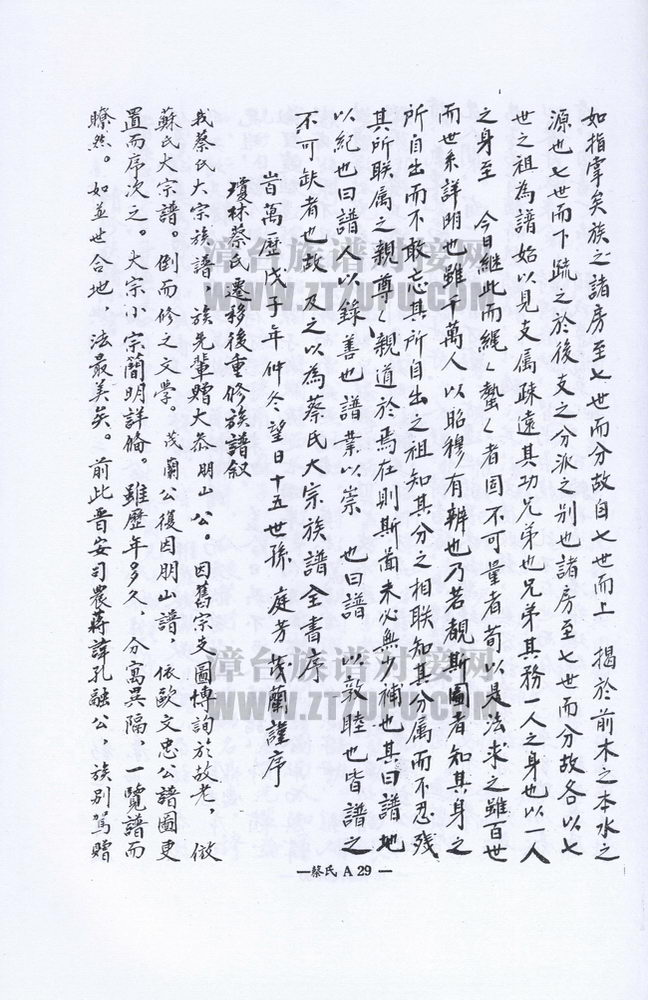 如指掌矣族之諸房至七世而分故自七世而上 揭於前木之本水之
源也七世而下疏之於後支之分派之別也諸房至七世而分故各以七
世之祖為譜始以見支属疎遠其功兄弟也兄弟其務一人之身也以一人
之身至 今日継此而縄〱蟄〱者固不可量者苟以是法求之雖百世
而世系詳明也雖千萬人以昭穆有辨也乃若覩斯圖者知其身之
所自出而不敢忘其所自出之祖知其分之相联知其分属而不忍残
其所联属之親尊〱親道於焉在則斯面未必無少補也其曰譜地
以紀也曰譜人以錄善也譜業以崇 也曰譜 以敦睦也皆譜之
不可缺者也故 及之以為蔡氏大宗族譜全書序
旹萬歷戊子年仲冬望日十五世孫 庭芳茂蘭謹序
瓊林蔡氏遷移後重修族譜叙
我蔡氏大宗族譜、族先輩贈大叅朋山公。因舊宗支圖博詢於故老，倣
蘇氏大宗譜。倒而修之文學。茂蘭公復因朋山譜，依歐文忠公譜圖更
置而序次之。大宗小宗簡明詳俻。雖歷年多久、分寓異隔、一覽譜而
瞭然。如並世合地，法最美矣。前此晋安司農蔣諱孔融公、族別駕贈
—蔡氏 A 29 —
漳台族谱对接网
WWW.ZTZUPU.COM
漳台族谱对接网
WWW.ZTZUPU.COM